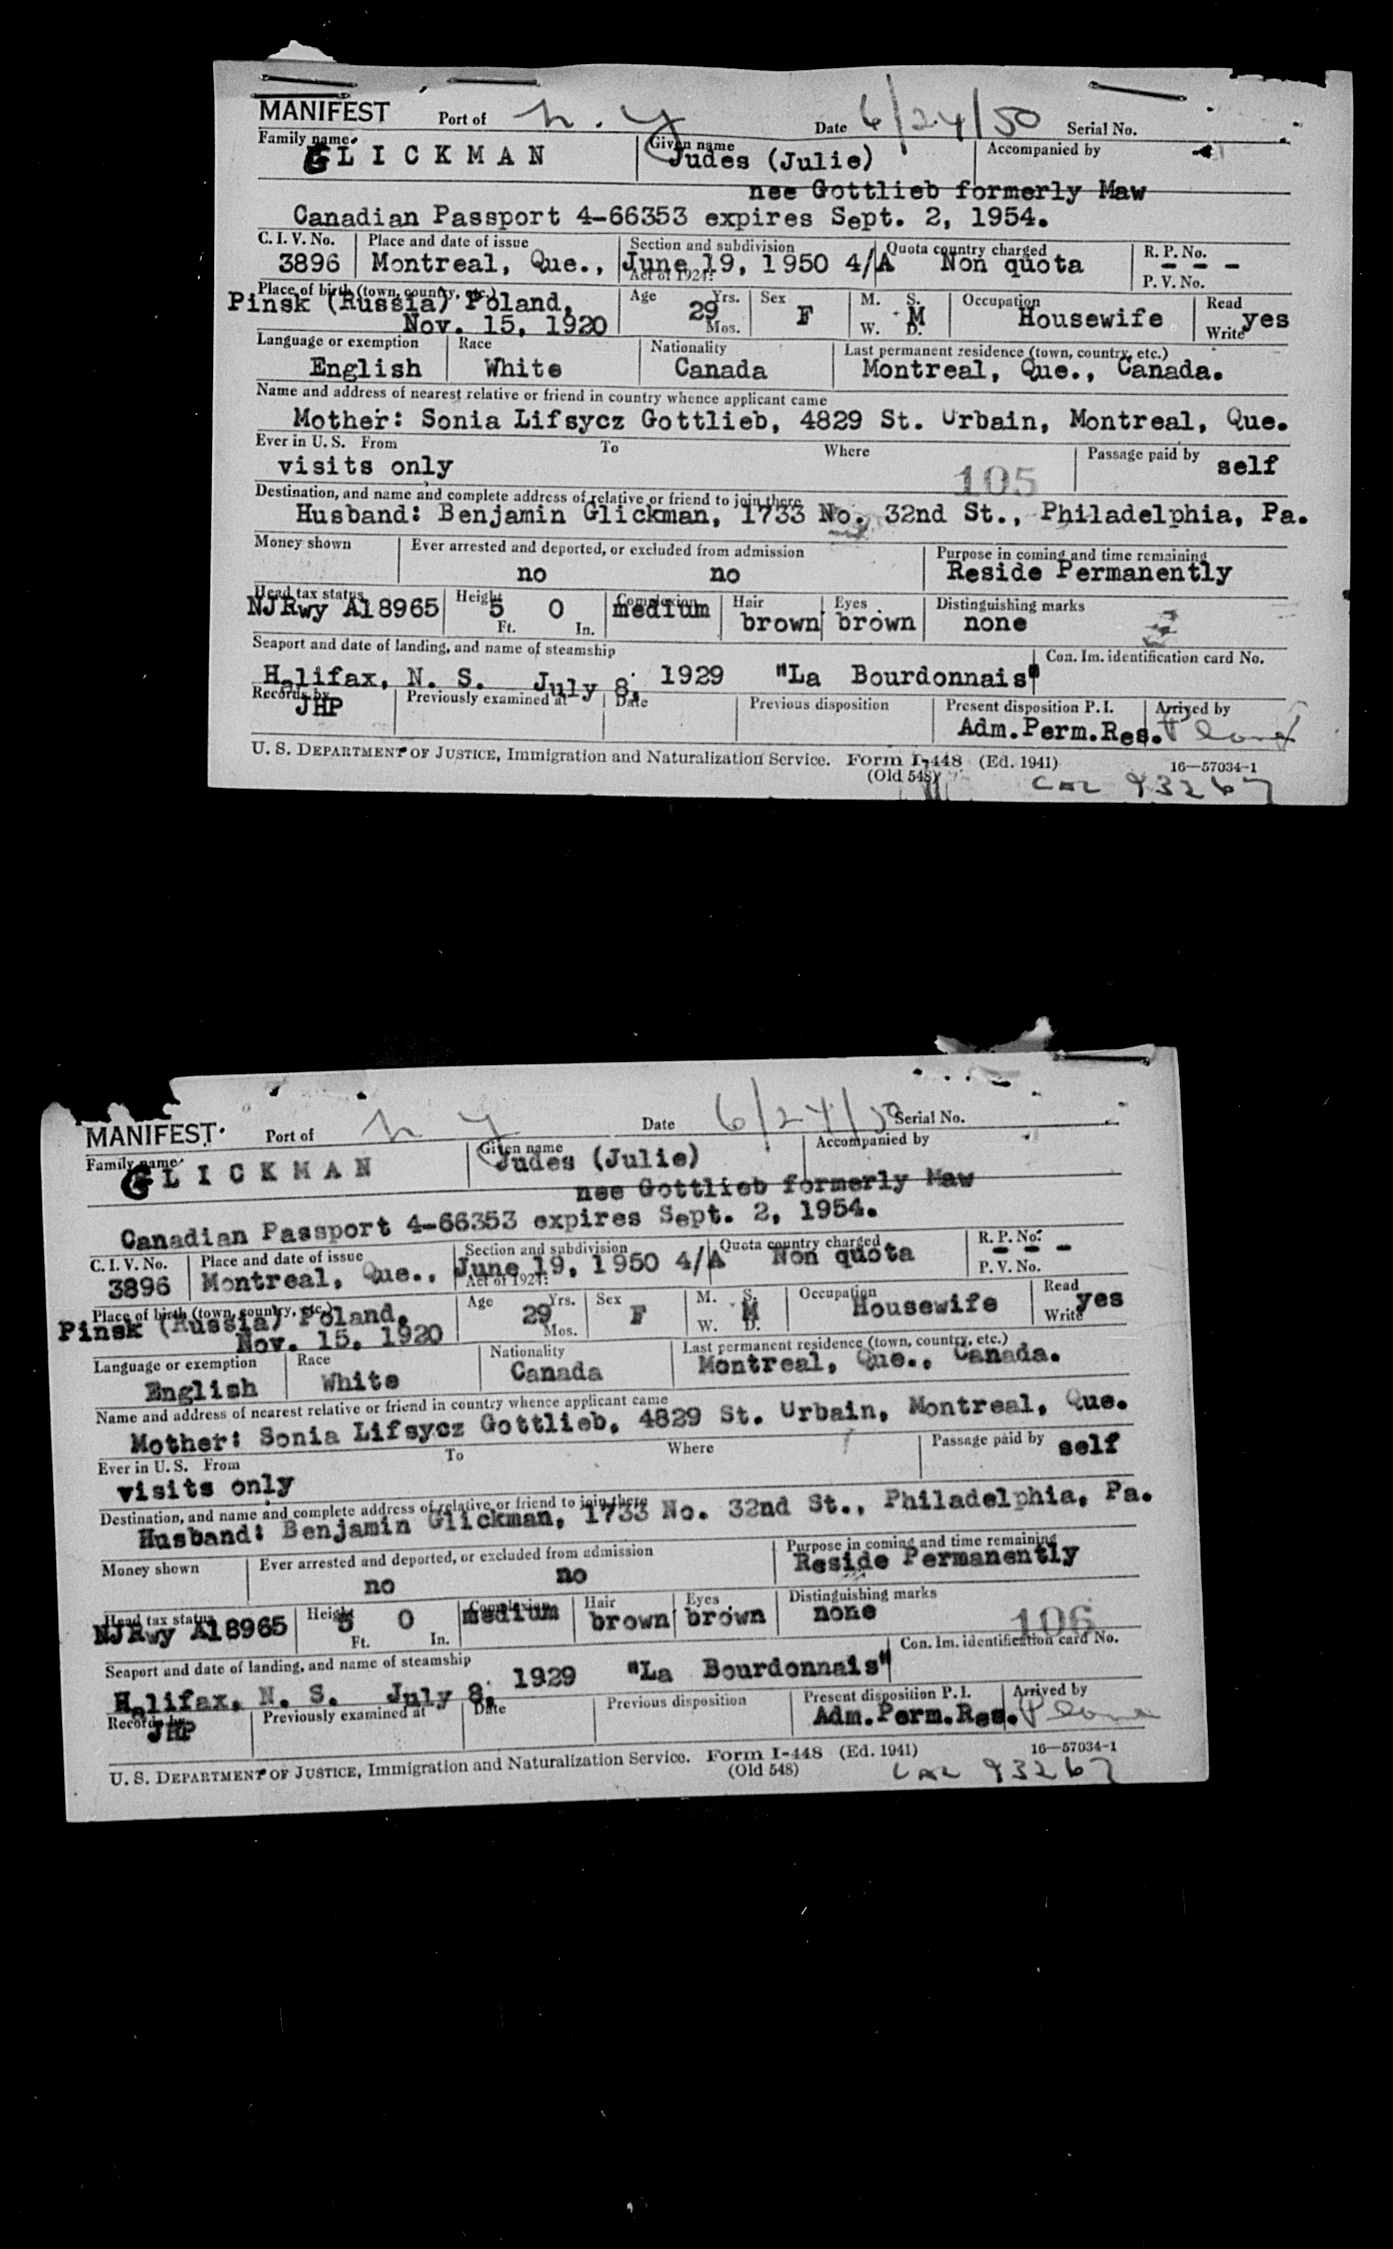 MANIFEST Port of N. Y Date 6/24/50 Serial No.
Family name Given name Accompanied by
GLICKMAN Judes (Julie)
nee Gottlieb formerly Maw
Canadian Passport 4-66353 expires Sept. 2, 1954.
C. I. V. No. Place and date of issue Section and subdivision Quota country charged R. P. No.
3896 Montreal, Que., June 19, 1950 4/A Non quota - - -
Act of 1924: P. V. No.
Place of birth (town, country, etc.) Age Yrs. Sex M. S. Occupation Read
Pinsk (Russia) Poland, 29 F M Housewife yes
Nov. 15, 1920 Mos. W. D. Write
Language or exemption Race Nationality Last permanent residence (town, country, etc.)
English White Canada Montreal, Que., Canada.
Name and address of nearest relative or friend in country whence applicant came
Mother: Sonia Lifsycz Gottlieb, 4829 St. Urbain, Montreal, Que.
Ever in U. S. From To Where Passage paid by
visits only 105 self
Destination, and name and complete address of relative or friend to join there
Husband: Benjamin Glickman, 1733 No. 32nd St., Philadelphia, Pa.
Money shown Ever arrested and deported, or excluded from admission Purpose in coming and time remaining
no no Reside Permanently
Head tax status Height Complexion Hair Eyes Distinguishing marks
NJRwy A18965 5 0 medium brown brown none
Ft. In.
Seaport and date of landing, and name of steamship Con. Im. identification card No.
Halifax, N. S. July 8, 1929 "La Bourdonnais"
Records by Previously examined at Date Previous disposition Present disposition P. I. Arrived by
JHP Adm.Perm.Res.
U. S. DEPARTMENT OF JUSTICE, Immigration and Naturalization Service. Form I-448 (Ed. 1941) 16—57034-1
(Old 548) 93267
MANIFEST Port of N Y Date 6/24/50 Serial No.
Family name Given name Accompanied by
GLICKMAN Judes (Julie)
nee Gottlieb formerly Maw
Canadian Passport 4-66353 expires Sept. 2, 1954.
C. I. V. No. Place and date of issue Section and subdivision Quota country charged R. P. No.
3896 Montreal, Que., June 19, 1950 4/A Non quota - - -
Act of 1924: P. V. No.
Place of birth (town, country, etc.) Age Yrs. Sex M. S. Occupation Read
Pinsk (Russia) Poland, 29 F M Housewife yes
Nov. 15, 1920 Mos. W. D. Write
Language or exemption Race Nationality Last permanent residence (town, country, etc.)
English White Canada Montreal, Que., Canada.
Name and address of nearest relative or friend in country whence applicant came
Mother: Sonia Lifsycz Gottlieb, 4829 St. Urbain, Montreal, Que.
Ever in U. S. From To Where Passage paid by
visits only self
Destination, and name and complete address of relative or friend to join there
Husband: Benjamin Glickman, 1733 No. 32nd St., Philadelphia, Pa.
Money shown Ever arrested and deported, or excluded from admission Purpose in coming and time remaining
no no Reside Permanently
Head tax status Height Complexion Hair Eyes Distinguishing marks
NJRwy A18965 5 0 medium brown brown none 106
Ft. In.
Seaport and date of landing, and name of steamship Con. Im. identification card No.
Halifax, N. S. July 8, 1929 "La Bourdonnais"
Records by Previously examined at Date Previous disposition Present disposition P. I. Arrived by
JHP Adm.Perm.Res.
U. S. DEPARTMENT OF JUSTICE, Immigration and Naturalization Service. Form I-448 (Ed. 1941) 16—57034-1
(Old 548) 93267